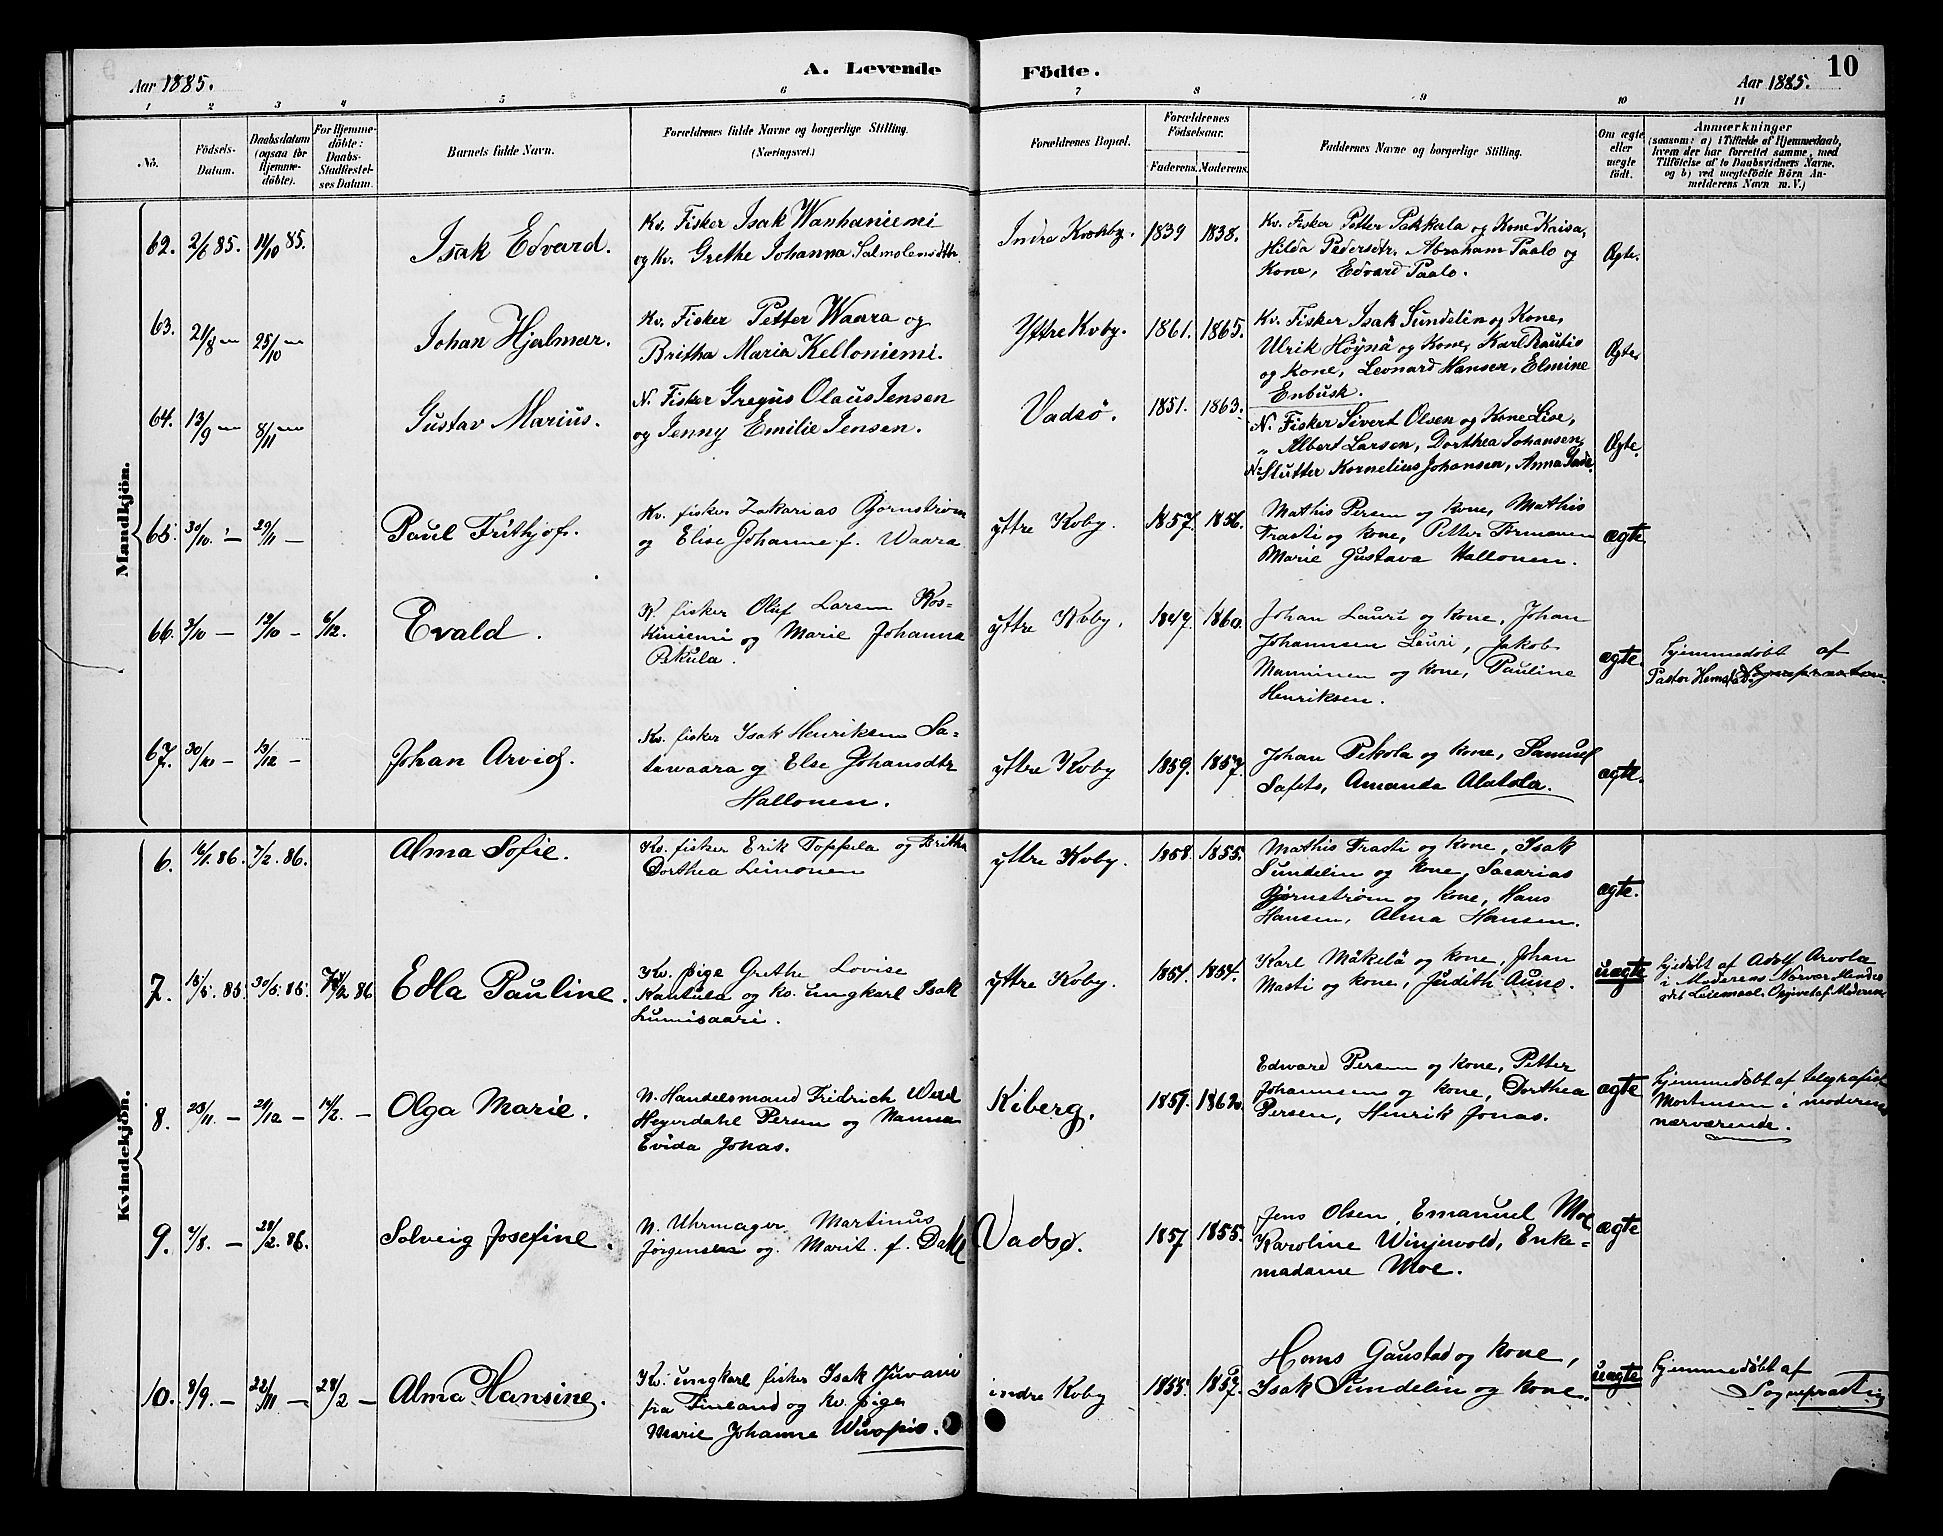 Aar 1885.
A. Levende
Födte.
Aar 1885.
10
1 2 3 4 5 6 7 8 9 10 11
No.
Födsels-
Datum.
Daabsdatum
(ogsaa for
Hjemme-
döbte).
For Hjemme-
döbte:
Daabs-
Stadfæstel-
ses Datum.
Barnets fulde Navn.
Forældrenes fulde Navne og borgerlige Stilling.
(Næringsvei.)
Forældrenes Bopæl.
Forældrenes
Födselsaar.
Faderens. Moderens.
Faddernes Navne og borgerlige Stilling.
Om ægte
eller
uægte
födt.
Anmærkninger
(saasom: a) i Tilfælde af Hjemmedaab,
hvem der har forrettet samme, med
Tilföielse af to Daabsvidners Navne,
og b) ved uægtefödte Börn An-
melderens Navn m. V.)
Mandkjön.
62. 2/6 85. 11/10 85.
Isak Edvard.
Kv. Fisker Isak Wanhaniemi
og Kv. Grethe Johanna Salmolensdtr.
Indre Kvænby. 1839 1838.
Kv. Fisker Petter Pakkala og Kone Kaisa,
Hilda Pedersdtr. Abraham Paalo og
Kone, Edvard Paalo.
Ægte.
63. 21/8 — 25/10 —
Johan Hjalmar.
Kv. Fisker Petter Waara og
Britha Maria Kelloniemi.
Yttre Kvby. 1861. 1865.
Kv. Fisker Isak Sundelin og Kone,
Ulrik Höynä og Kone, Karl Rautio
og Kone, Leonard Hansen, Elmine
Enbusk.
Ægte
64. 13/9 — 8/11 —
Gustav Marius.
N. Fisker Gregus Olaus Jensen
og Jenny Emilie Jensen.
Vadsö. 1851. 1863.
N. Fisker Sivert Olsen og Kone Lise,
„ Albert Larsen, Dorthea Johansen,
N. Slutter Kornelius Johansen, Anna
Ægte.
65. 30/10. — 29/11 —
Paul Frithjof.
Kv. fisker Zakarias Bjørnstrøm
og Elise Johanne f. Waara
yttre Kvby. 1857. 1856.
Mathis Persen og kone, Mathis
Frasti og kone, Petter Formanen
Marie Gustava Hallonen.
ægte
66. 3/10 — 13/10 — 6/12.
Evald.
K. fisker Oluf Larsen Kos-
kiniemi og Marie Johanna
Pekula.
yttre Kvby. 1847. 1860.
Johan Lauri og kone, Johan
Johannsen Lauri, Jakob
Manninen og kone, Pauline
Henriksen.
ægte.
hjemmedøbt af
Pastor
67. 30/10 — 13/12 —
Johan Arvid.
Kv. fisker Isak Henriksen Sa-
tawaara og Else Johansdtr
Hallonen.
yttre Kvby 1859. 1857.
Johan Pekola og kone, Samuel
Safets, Amanda Alatola.
ægte.
Kvindekjön.
6. 16/1. 86. 7/2. 86.
Alma Sofie.
Kv. fisker Erik Toppela og Britha
Dorthea Leinonen
yttre Kvby. 1858. 1855.
Mathis Frasti og kone, Isak
Sundelin og kone, Sacarias
Bjørnstrøm og kone, Hans
Hansen, Alma Hansen.
ægte.
7. 18/5. 85. 30/5. 85. /2 86
Edla Pauline.
Kv. pige Grethe Lovise
Kantula og kv. ungkarl Isak
Lumisaari.
yttre Kvby. 1854. 1854.
Karl Mäkelä og kone, Johan
Masti og kone, Judith Auno.
uægte
hjdøbt af Adolf Arvola
i Moderens Nærvær. Andet
Leiemaal. Opgivet af Moderen
8. 23/11. — 29/12 — 14/2. —
Olga Marie.
N. Handelsmand Fridrich Wesel
Heyerdahl Persen og Nanna
Evida Jonas.
Kiberg. 1857. 1862.
Edward Persen og kone, Petter
Johannsen og kone, Dorthea
Persen, Henrik Jonas.
ægte
hjemmedøbt af telegrafist
Mortensen i moderens
nærværende.
9. 7/8. — 28/2. 86.
Solveig Josefine.
N. Uhrmager Martinus
Jørgensen og Marit f. Dahl
Vadsø. 1857 1855.
Jens Olsen, Emanuel Moe
Karoline Winjevold, Enke=
madame Moe.
ægte
10. 8/9. — 22/11 — 28/2 —
Alma Hansine.
Kv. ungkarl fisker Isak Juvani
fra Finland og kv. pige
Marie Johanne Wuopio.
indre Kvby 1855. 1857.
Hans Gaustad og kone,
Isak Sundelin og kone.
uægte
hjemmedøbt af
Sognepræsten